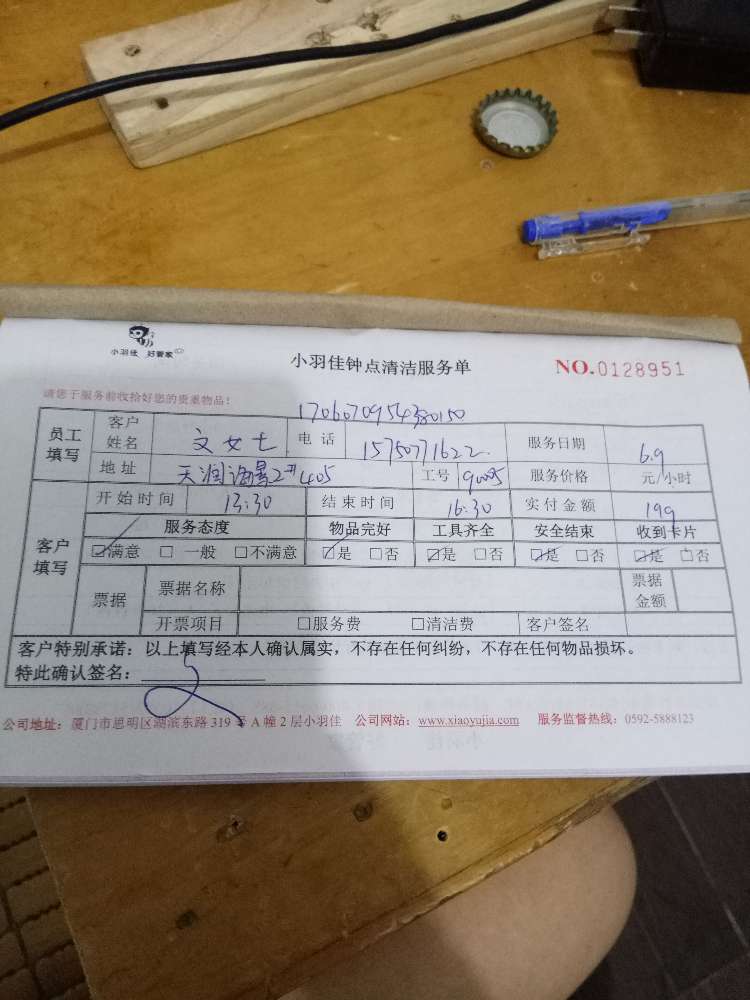 小羽佳 好管家
小羽佳钟点清洁服务单
NO.0128951
请您于服务前收拾好您的贵重物品!
1706070954380150
员工填写 客户姓名 文女士 电话 15750771622 服务日期 6.9
地址 天润海景2#405 工号 90095 服务价格 元/小时
客户填写 开始时间 13:30 结束时间 16:30 实付金额 199
服务态度 物品完好 工具齐全 安全结束 收到卡片
☑满意 □一般 □不满意 ☑是 □否 ☑是 □否 ☑是 □否 ☑是 □否
票据 票据名称 票据金额
开票项目 □服务费 □清洁费 客户签名
客户特别承诺：以上填写经本人确认属实，不存在任何纠纷，不存在任何物品损坏。
特此确认签名：
公司地址：厦门市思明区湖滨东路 319 号 A 幢 2 层小羽佳 公司网站：www.xiaoyujia.com 服务监督热线：0592-5888123